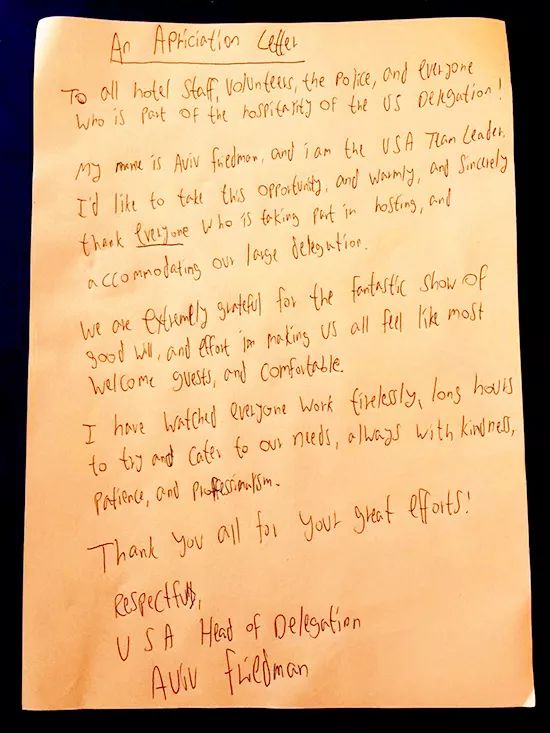 An Apriciation Letter
To all hotel staff, volunteers, the police, and everyone
who is part of the hospitarity of the US Delegation!
My name is Aviv Friedman, and i am the USA Team Leader.
I'd like to take this opportunity, and warmly, and sincerely
thank everyone who is taking part in hosting, and
accommodating our large delegation.
We are extremely grateful for the fantastic show of
good will, and effort in making us all feel like most
welcome guests, and comfortable.
I have watched everyone work tirelessly, long hours
to try and cater to our needs, always with kindness,
patience, and proffessionalism.
Thank you all for your great efforts!
Respectfully,
USA Head of Delegation
Aviv Friedman